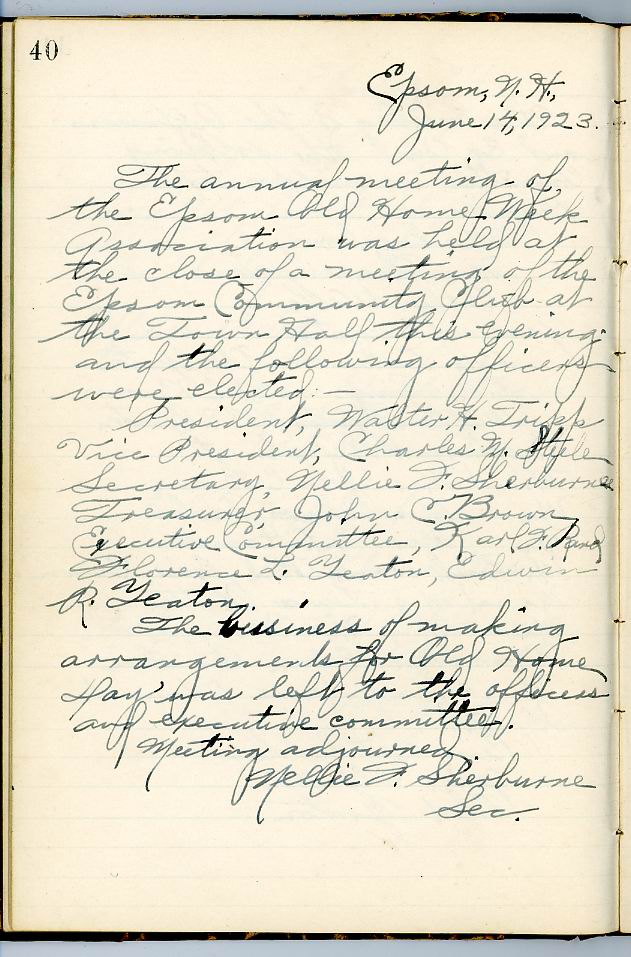 40
Epsom, N. H.,
June 14, 1923.
The annual meeting of
the Epsom Old Home Week
Association was held at
the close of a meeting of the
Epsom Community Club at
the Town Hall this evening
and the following officers
were elected:—
President, Walter H. Tripp
Vice President, Charles M. Steele
Secretary, Nellie F. Sherburne
Treasurer, John C. Brown
Executive Committee, Karl F. Rand
Florence L. Yeaton, Edwin
R. Yeaton.
The business of making
arrangements for Old Home
Day was left to the officers
and executive committee.
Meeting adjourned
Nellie F. Sherburne
Sec.